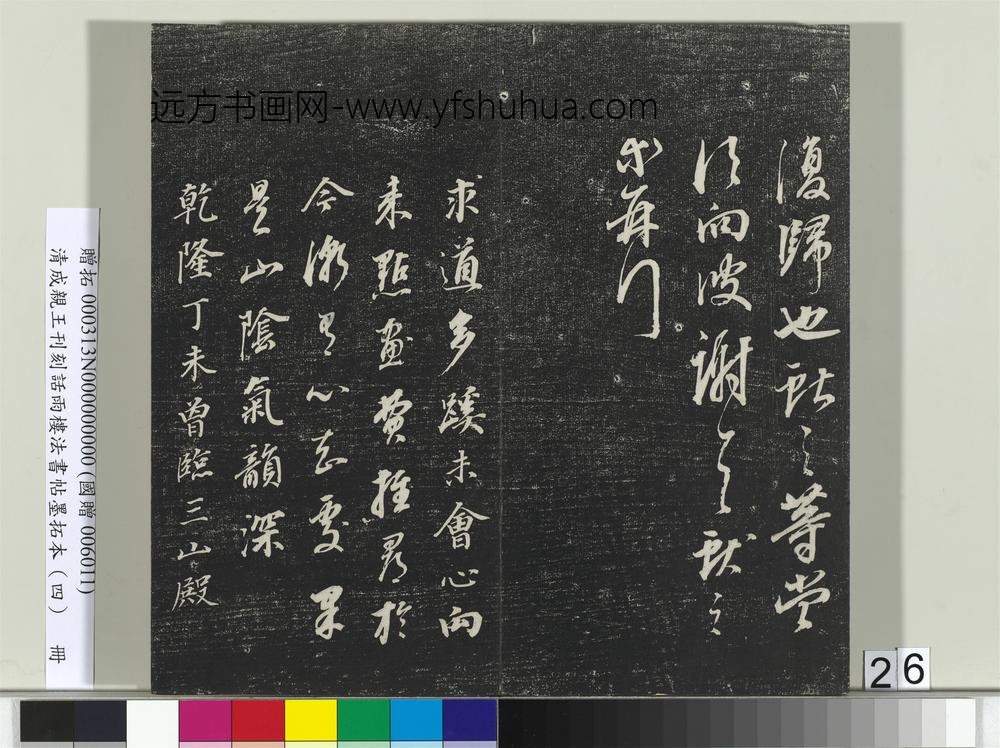 远方书画网-www.yfshuhua.com
復歸也獻之等當
須向彼謝之獻之
再行
求道多蹊未會心向
来點畫費推尋於
今漸有心玄處果
是山陰氣韻深
乾隆丁未曾臨三山殿
贈拓 000313N000000000(國贈 006011)
清成親王刊刻話雨樓法書帖墨拓本(四) 冊
26